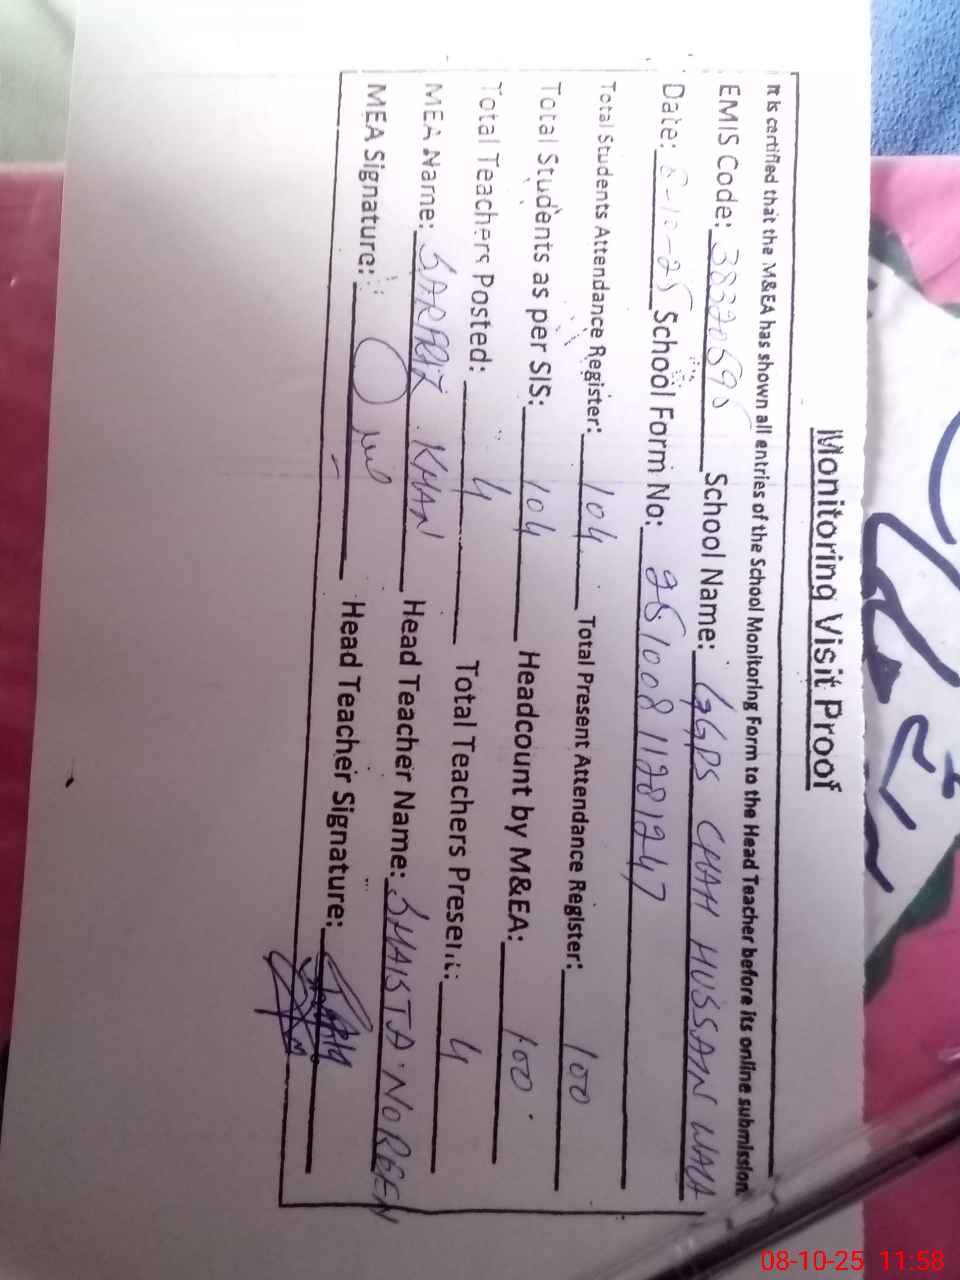 Monitoring Visit Proof
It is certified that the M&EA has shown all entries of the School Monitoring Form to the Head Teacher before its online submission
EMIS Code: 38320695 School Name: GGPS CHAH HUSSAN WALA
Date: 8-10-25 School Form No: 25100811281247
Total Students Attendance Register: 104 Total Present Attendance Register: 100
Total Students as per SIS: 104 Headcount by M&EA: 100
Total Teachers Posted: 4 Total Teachers Present: 4
MEA Name: SARFRAZ KHAN Head Teacher Name: SHAISTA NOREEN
MEA Signature: Head Teacher Signature:
08-10-25 11:58